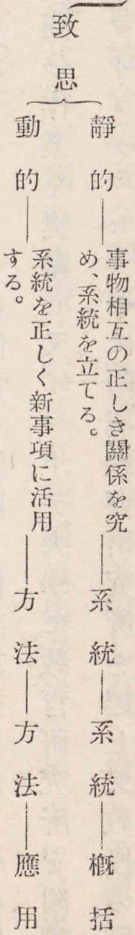 致思
靜的―事物相互の正しき關係を究
め、系統を立てる。―系統―系統―概括
動的―系統を正しく新事項に活用
する。―方法―方法―應用